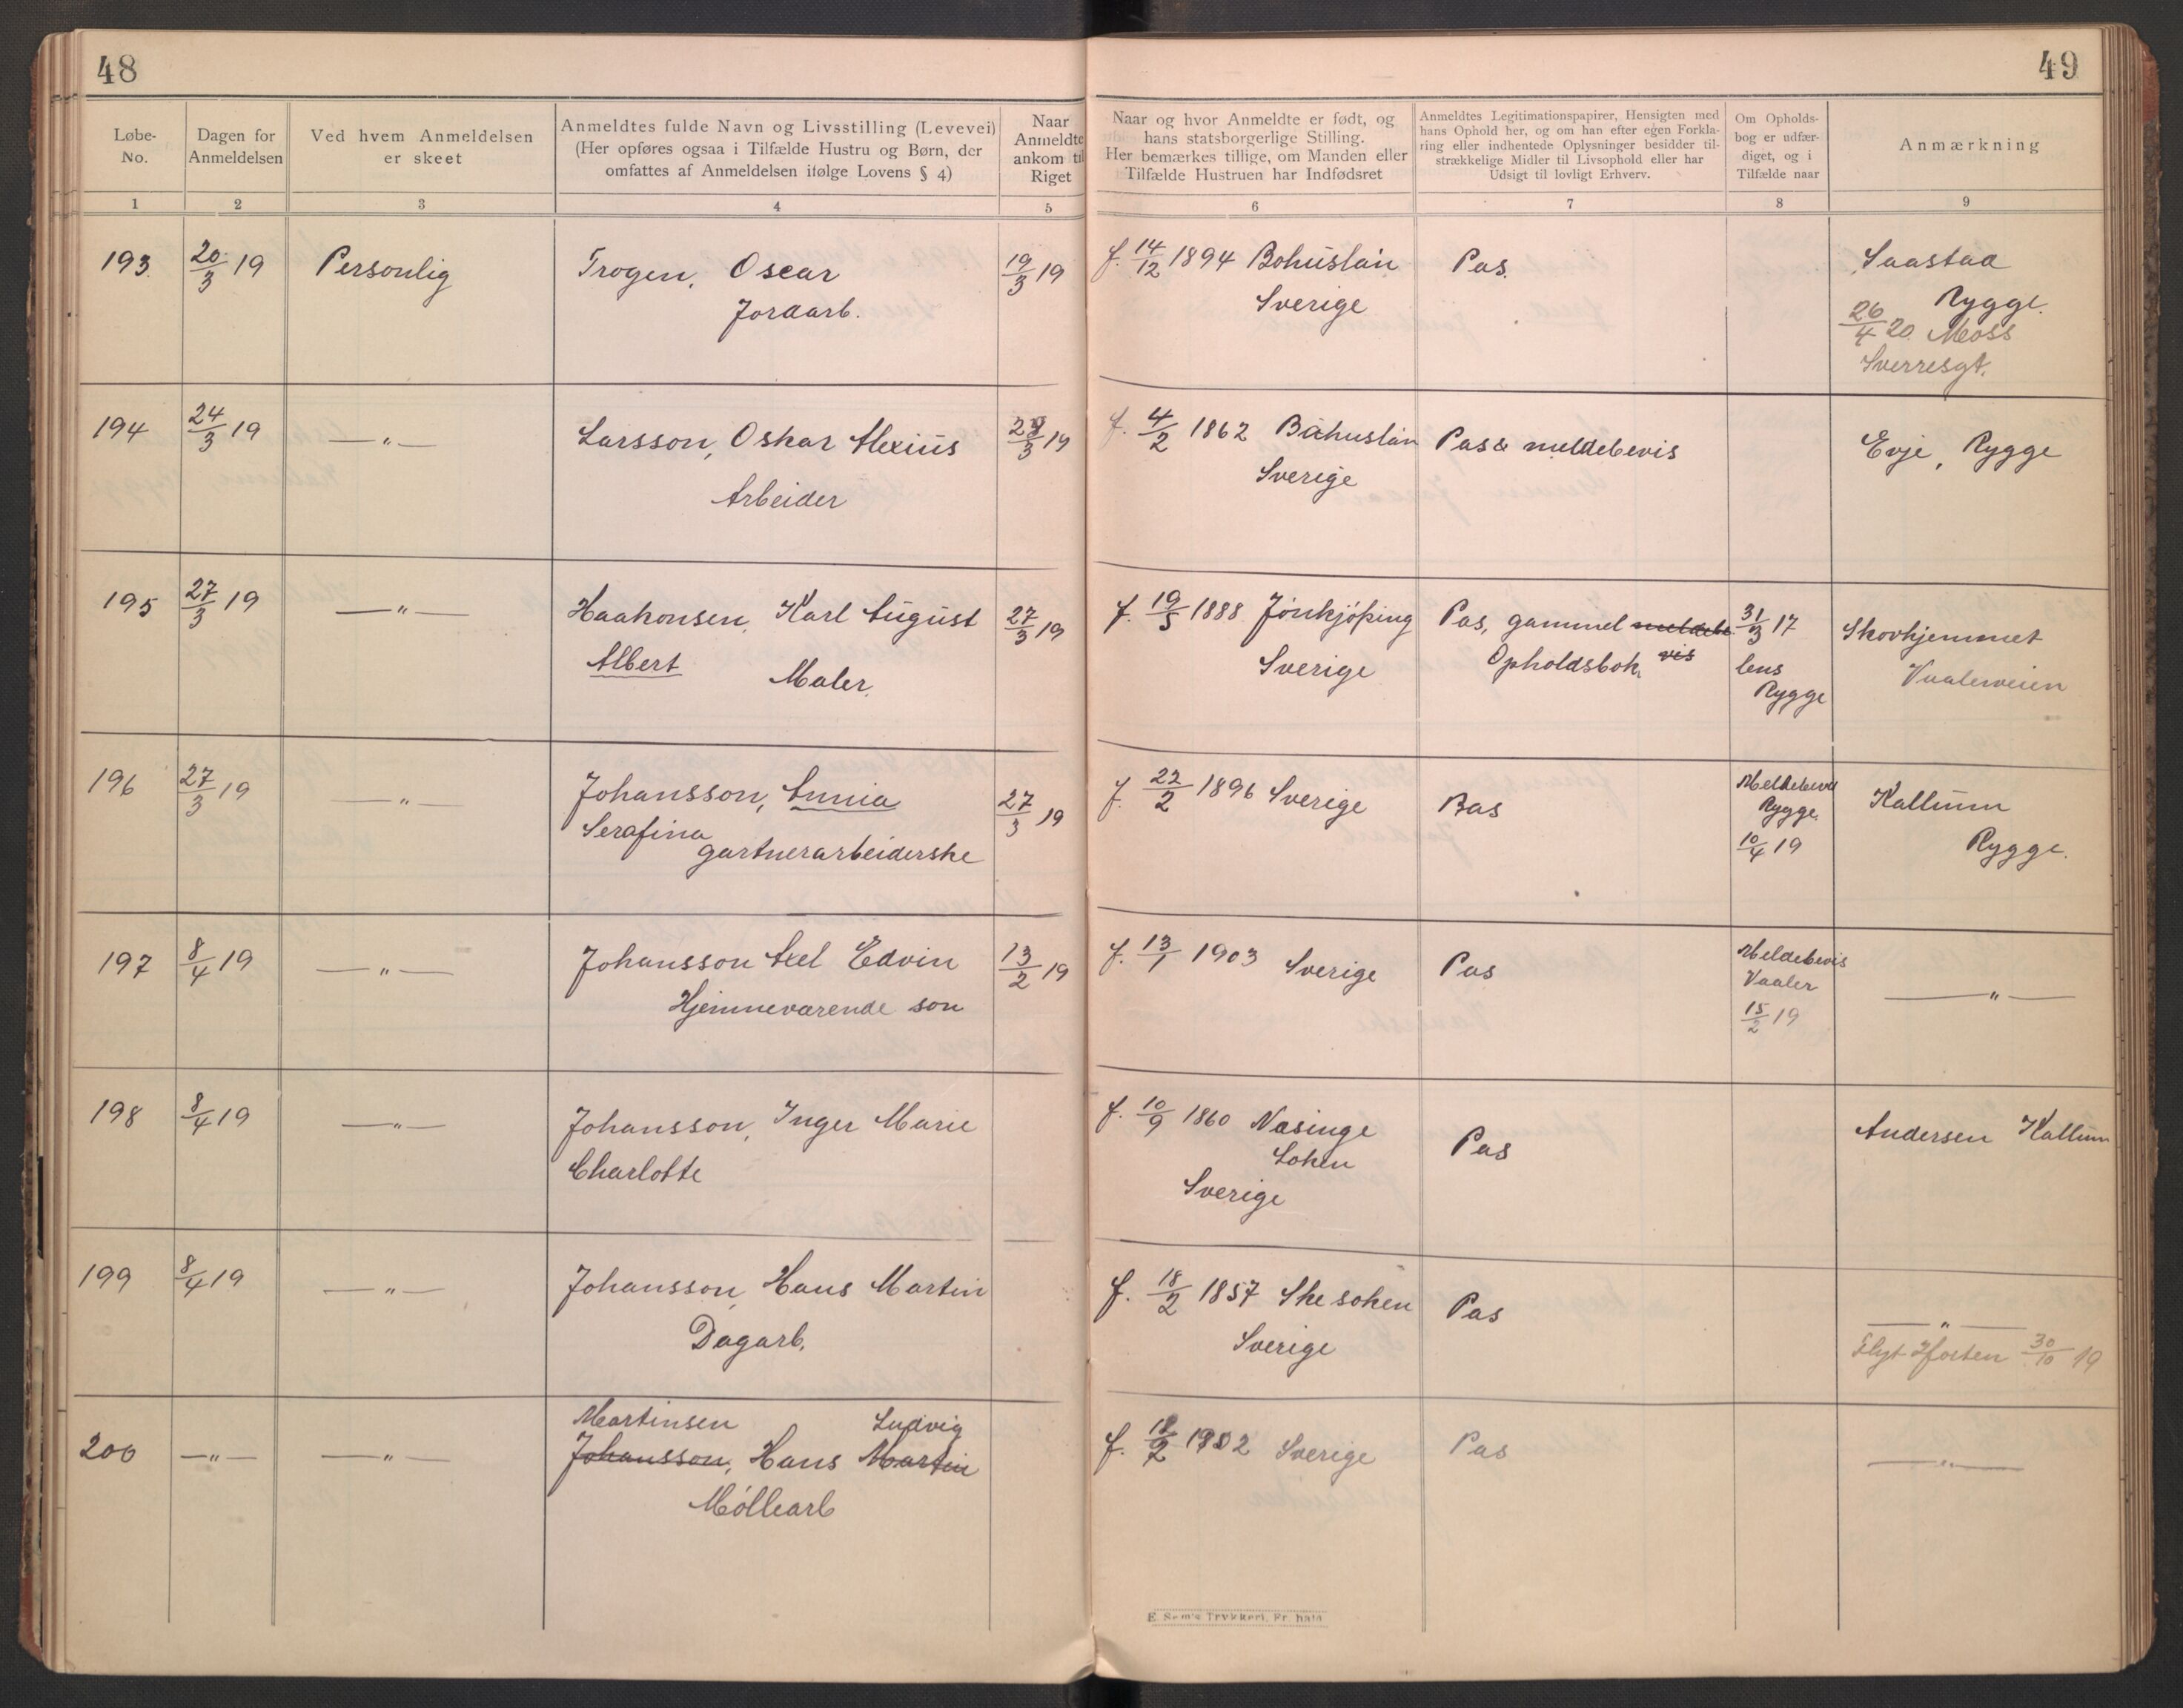 48
Løbe-
No.
Dagen for
Anmeldelsen
Ved hvem Anmeldelsen
er skeet
Anmeldtes fulde Navn og Livsstilling (Levevei)
(Her opføres ogsaa i Tilfælde Hustru og Børn, der
omfattes af Anmeldelsen ifølge Lovens § 4)
Naar
Anmeldte
ankom til
Riget
1 2 3 4 5
193 20/3 19 Personlig Trogen, Oscar 19/3 19
Jordarb.
194 24/3 19 —„— Larsson, Oskar Alexius 23/3 19
Arbeider
195 27/3 19 —„— Haakonsen, Karl August 27/3 19
Albert Maler.
196 27/3 19 —„— Johansson, Annia 27/3 19
Serafina
gartnerarbeiderske
197 8/4 19 —„— Johansson Axel Edvin 13/2 19
Hjemmeværende søn
198 8/4 19 —„— Johansson, Inger Marie
Charlotte
199 8/4 19 —„— Johansson, Hans Martin
Dagarb.
Martinsen Ludvig
200 —„— —„— Johansson, Hans Martin
Møllearb
49
Naar og hvor Anmeldte er født, og
hans statsborgerlige Stilling.
Her bemærkes tillige, om Manden eller
Tilfælde Hustruen har Indfødsret
Anmeldtes Legitimationspapirer, Hensigten med
hans Ophold her, og om han efter egen Forkla-
ring eller indhentede Oplysninger besidder til-
strækkelige Midler til Livsophold eller har
Udsigt til lovligt Erhverv.
Om Opholds-
bog er udfær-
diget, og i
Tilfælde naar
Anmærkning
6 7 8 9
f. 14/12 1894 Bohuslän Pas. Saastad
Sverige Rygge.
26/4 20. Moss
Sverresgt.
f. 4/2 1862 Båhuslän Pas & meldebevis Evje, Rygge
Sverige
f. 19/5 1888 Jönkjöping Pas, gammel meldebe 31/3 17 Skovhjemmet
Sverige Opholdsbok vis lens Vaalerveien
Rygge
f. 22/2 1896 Sverige Pas Meldebevis Kallum
Rygge. Rygge.
10/4 19
f. 13/1 1903 Sverige Pas Meldebevis —„—
Vaaler
15/2 19
f. 10/9 1860 Nasinge Pas Andersen Kallum
Soken
Sverige
f. 18/2 1857 Skesoken Pas —„—
Sverige Flyt Horten 30/10 19
f. 18/2 1902 Sverige Pas —„—
E. Sem's Trykkeri, Fr. hald